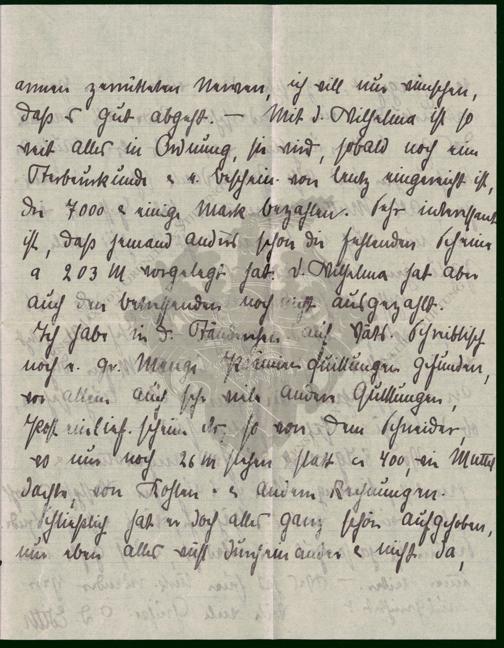 armen zerrütteten Nerven, ich will nur wünschen,
daß es gut abgeht. — Mit d. Wilhelma ist so
weit alles in Ordnung, sie wird, sobald noch eine
Sterbeurkunde u. e. Beschein. von eingereicht ist,
die 7000 u einige Mark bezahlen. Sehr interessant
ist, daß jemand anders schon die fehlenden Scheine
a 203 M vorgelegt hat. d. Wilhelma hat aber
auch den betreffenden noch nicht ausgezahlt.
Ich habe in d. auf Vaters Schreibtisch
noch e. gr. Menge Prämienquittungen gefunden,
vor allem auch sehr viele andere Quittungen,
Posteinlief. scheine etc., so von dem Schneider,
wo nur noch 26 M stehen statt ca 400 wie Mutter
dachte, von Kohlen u. andern Rechnungen.
Schließlich hat er doch alles ganz schön aufgehoben,
nur eben alles durcheinander u nicht da,